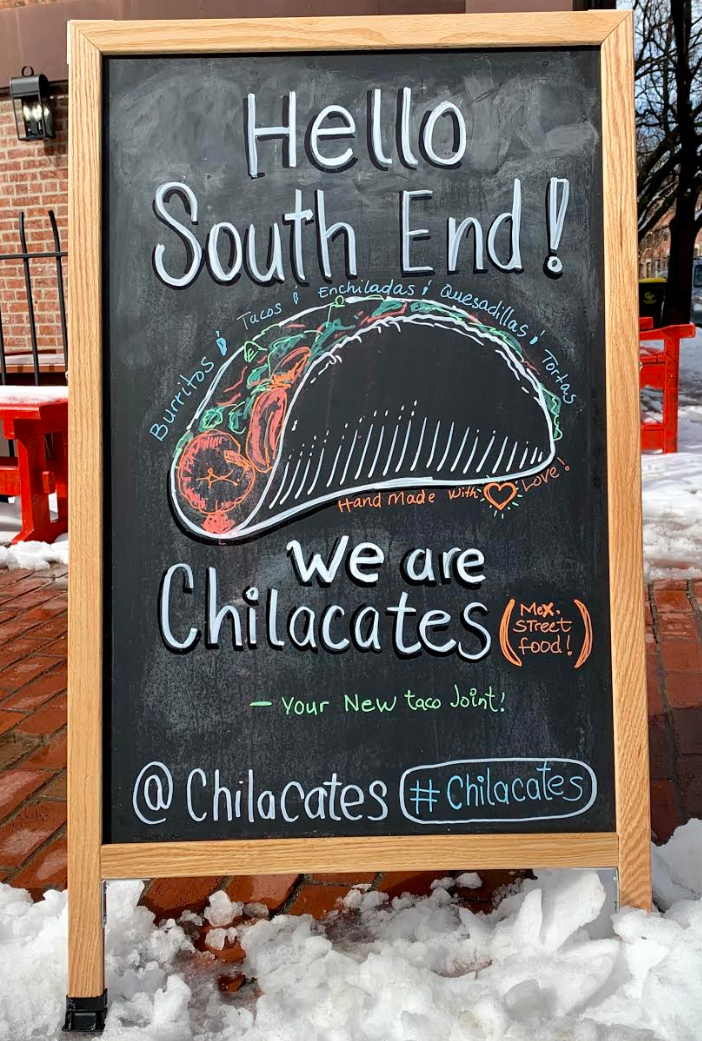 Hello
South End!
Burritos & Tacos & Enchiladas & Quesadillas & Tortas
Hand Made with Love!
we are
Chilacates
(Mex.
Street
food!)
- Your New taco Joint!
@Chilacates #Chilacates